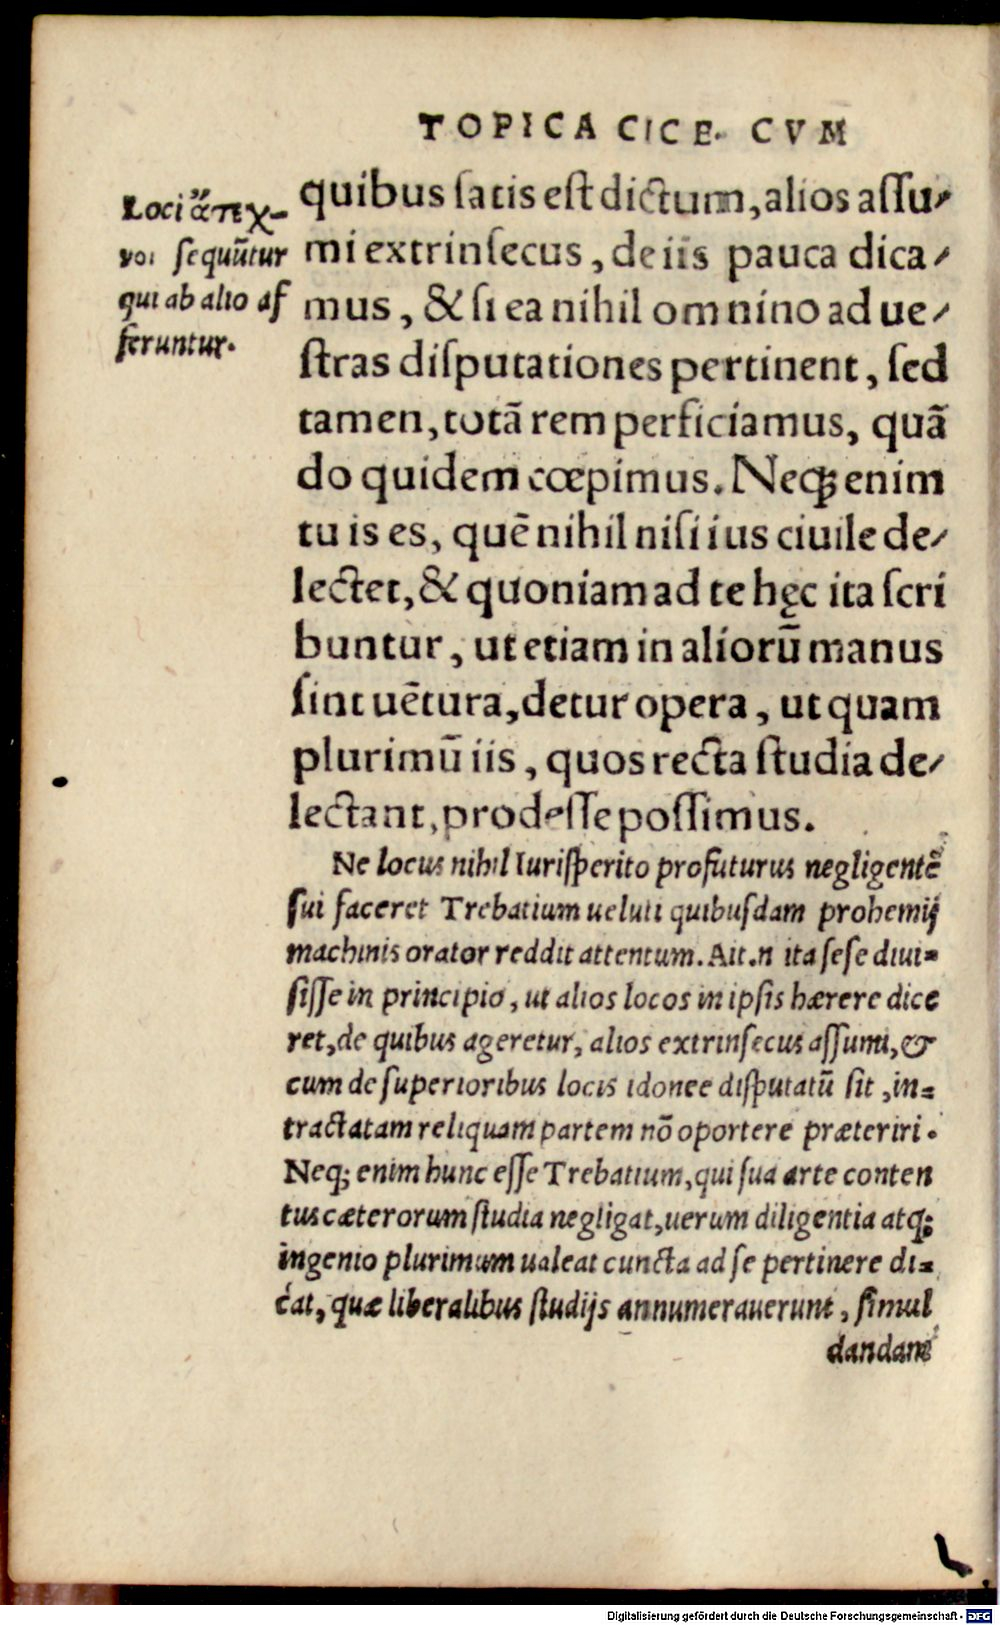 TOPICA CICE. CVM
Loci ἄπεχ-
νοι sequūtur
qui ab alio aſ
ſeruntur.
quibus ſatis eſt dictum, alios aſſu-
mi extrinſecus, de iis pauca dica-
mus, & ſi ea nihil omnino ad ue-
ſtras diſputationes pertinent, ſed
tamen, totā rem perficiamus, quā
do quidem cœpimus. Neqꝫ enim
tu is es, quē nihil niſi ius ciuile de-
lectet, & quoniam ad te hęc ita ſcri
buntur, ut etiam in aliorū manus
ſint uētura, detur opera, ut quam
plurimū iis, quos recta ſtudia de-
lectant, prodeſſe poſſimus.
Ne locus nihil Iuriſperito profuturus negligentē
ſui faceret Trebatium ueluti quibuſdam prohemij
machinis orator reddit attentum. Ait.n ita ſeſe diui-
ſiſſe in principio, ut alios locos in ipſis hærere dice
ret, de quibus ageretur, alios extrinſecus aſſumi, &
cum de ſuperioribus locis idonee diſputatū ſit, in-
tractatam reliquam partem nō oportere præteriri.
Neqꝫ enim hunc eſſe Trebatium, qui ſua arte conten
tus cæterorum ſtudia negligat, uerum diligentia atqꝫ
ingenio plurimum ualeat cuncta ad ſe pertinere di-
cat, quæ liberalibus ſtudijs annumerauerunt, ſimul
dandam
Digitalisierung gefördert durch die Deutsche Forschungsgemeinschaft - DFG